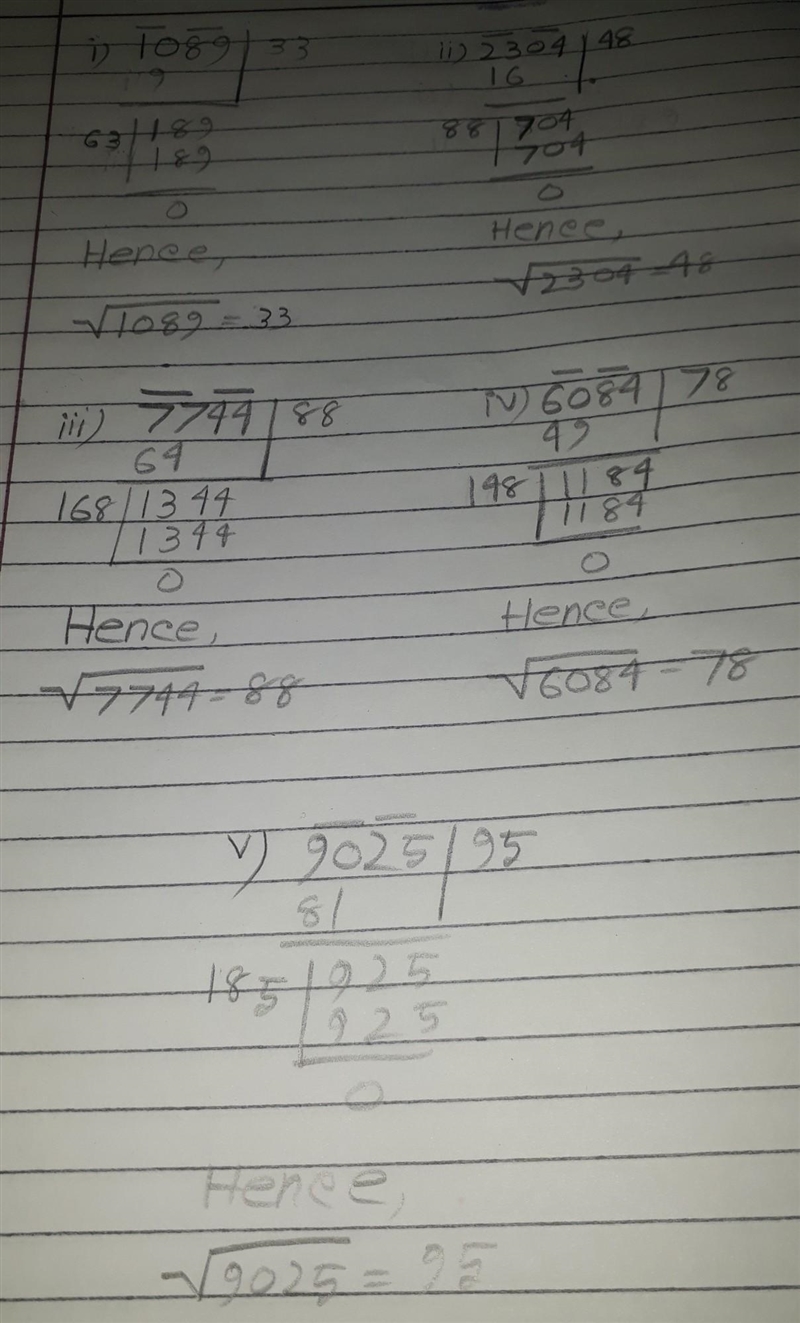 i) 1089 33
9
63 189
189
0
Hence,
√1089 = 33
ii) 2304 48
16
88 704
704
0
Hence,
√2304 = 48
iii) 7744 88
64
168 1344
1344
0
Hence,
√7744 = 88
iv) 6084 78
49
148 1184
1184
0
Hence,
√6084 = 78
v) 9025 95
81
185 925
925
0
Hence,
√9025 = 95